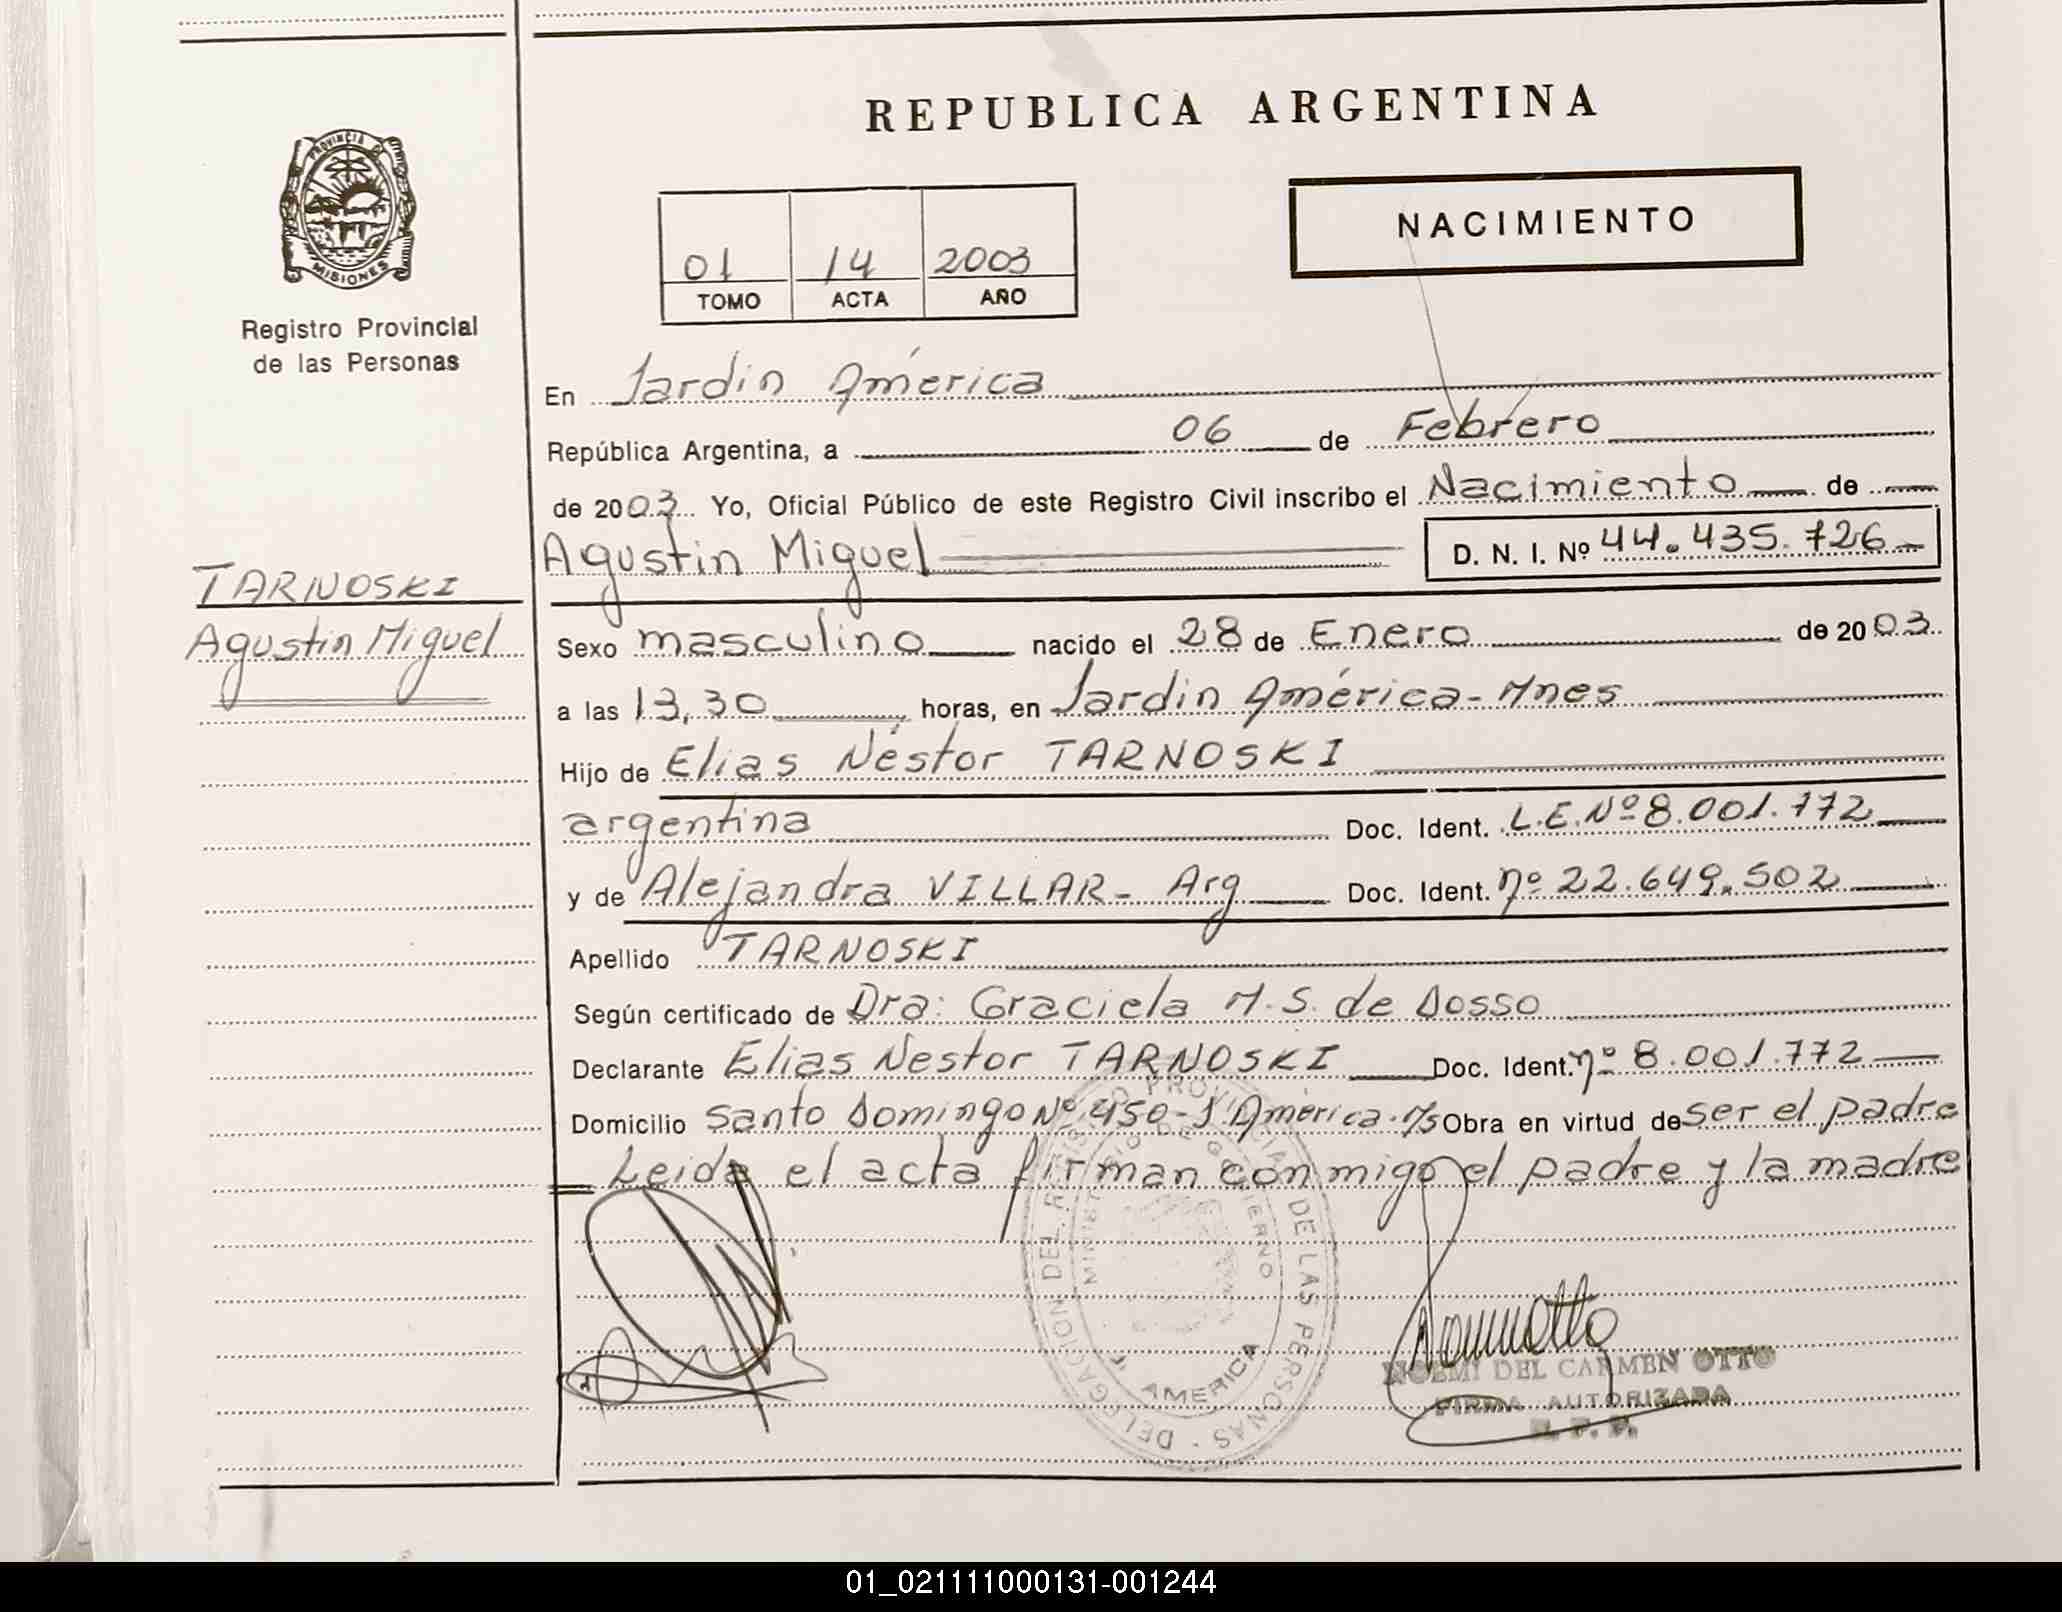 REPUBLICA ARGENTINA
PROVINCIA DE
MISIONES
Registro Provincial
de las Personas
NACIMIENTO
01 14 2003
TOMO ACTA AÑO
En Jardin América
República Argentina, a 06 de Febrero
de 2003 Yo, Oficial Público de este Registro Civil inscribo el Nacimiento de
Agustin Miguel D. N. I. Nº 44.435.726
TARNOSKI
Agustin Miguel
Sexo masculino nacido el 28 de Enero de 2003
a las 13,30 horas, en Jardin América - Mnes
Hijo de Elias Néstor TARNOSKI
argentina Doc. Ident. L.E. Nº 8.001.772
y de Alejandra VILLAR - Arg Doc. Ident. nº 22.649.502
Apellido TARNOSKI
Según certificado de Dra: Graciela M. S. de Dosso
Declarante Elias Nestor TARNOSKI Doc. Ident. nº 8.001.772
Domicilio Santo Domingo Nº 450 - J América - M/s Obra en virtud de ser el padre
Leida el acta firman conmigo el padre y la madre
DELEGACION DEL REGISTRO PROVINCIAL DE LAS PERSONAS
MINISTERIO DE GOBIERNO
AMERICA
NOEMI DEL CARMEN OTTO
FIRMA AUTORIZADA
R. P. P.
01_021111000131-001244